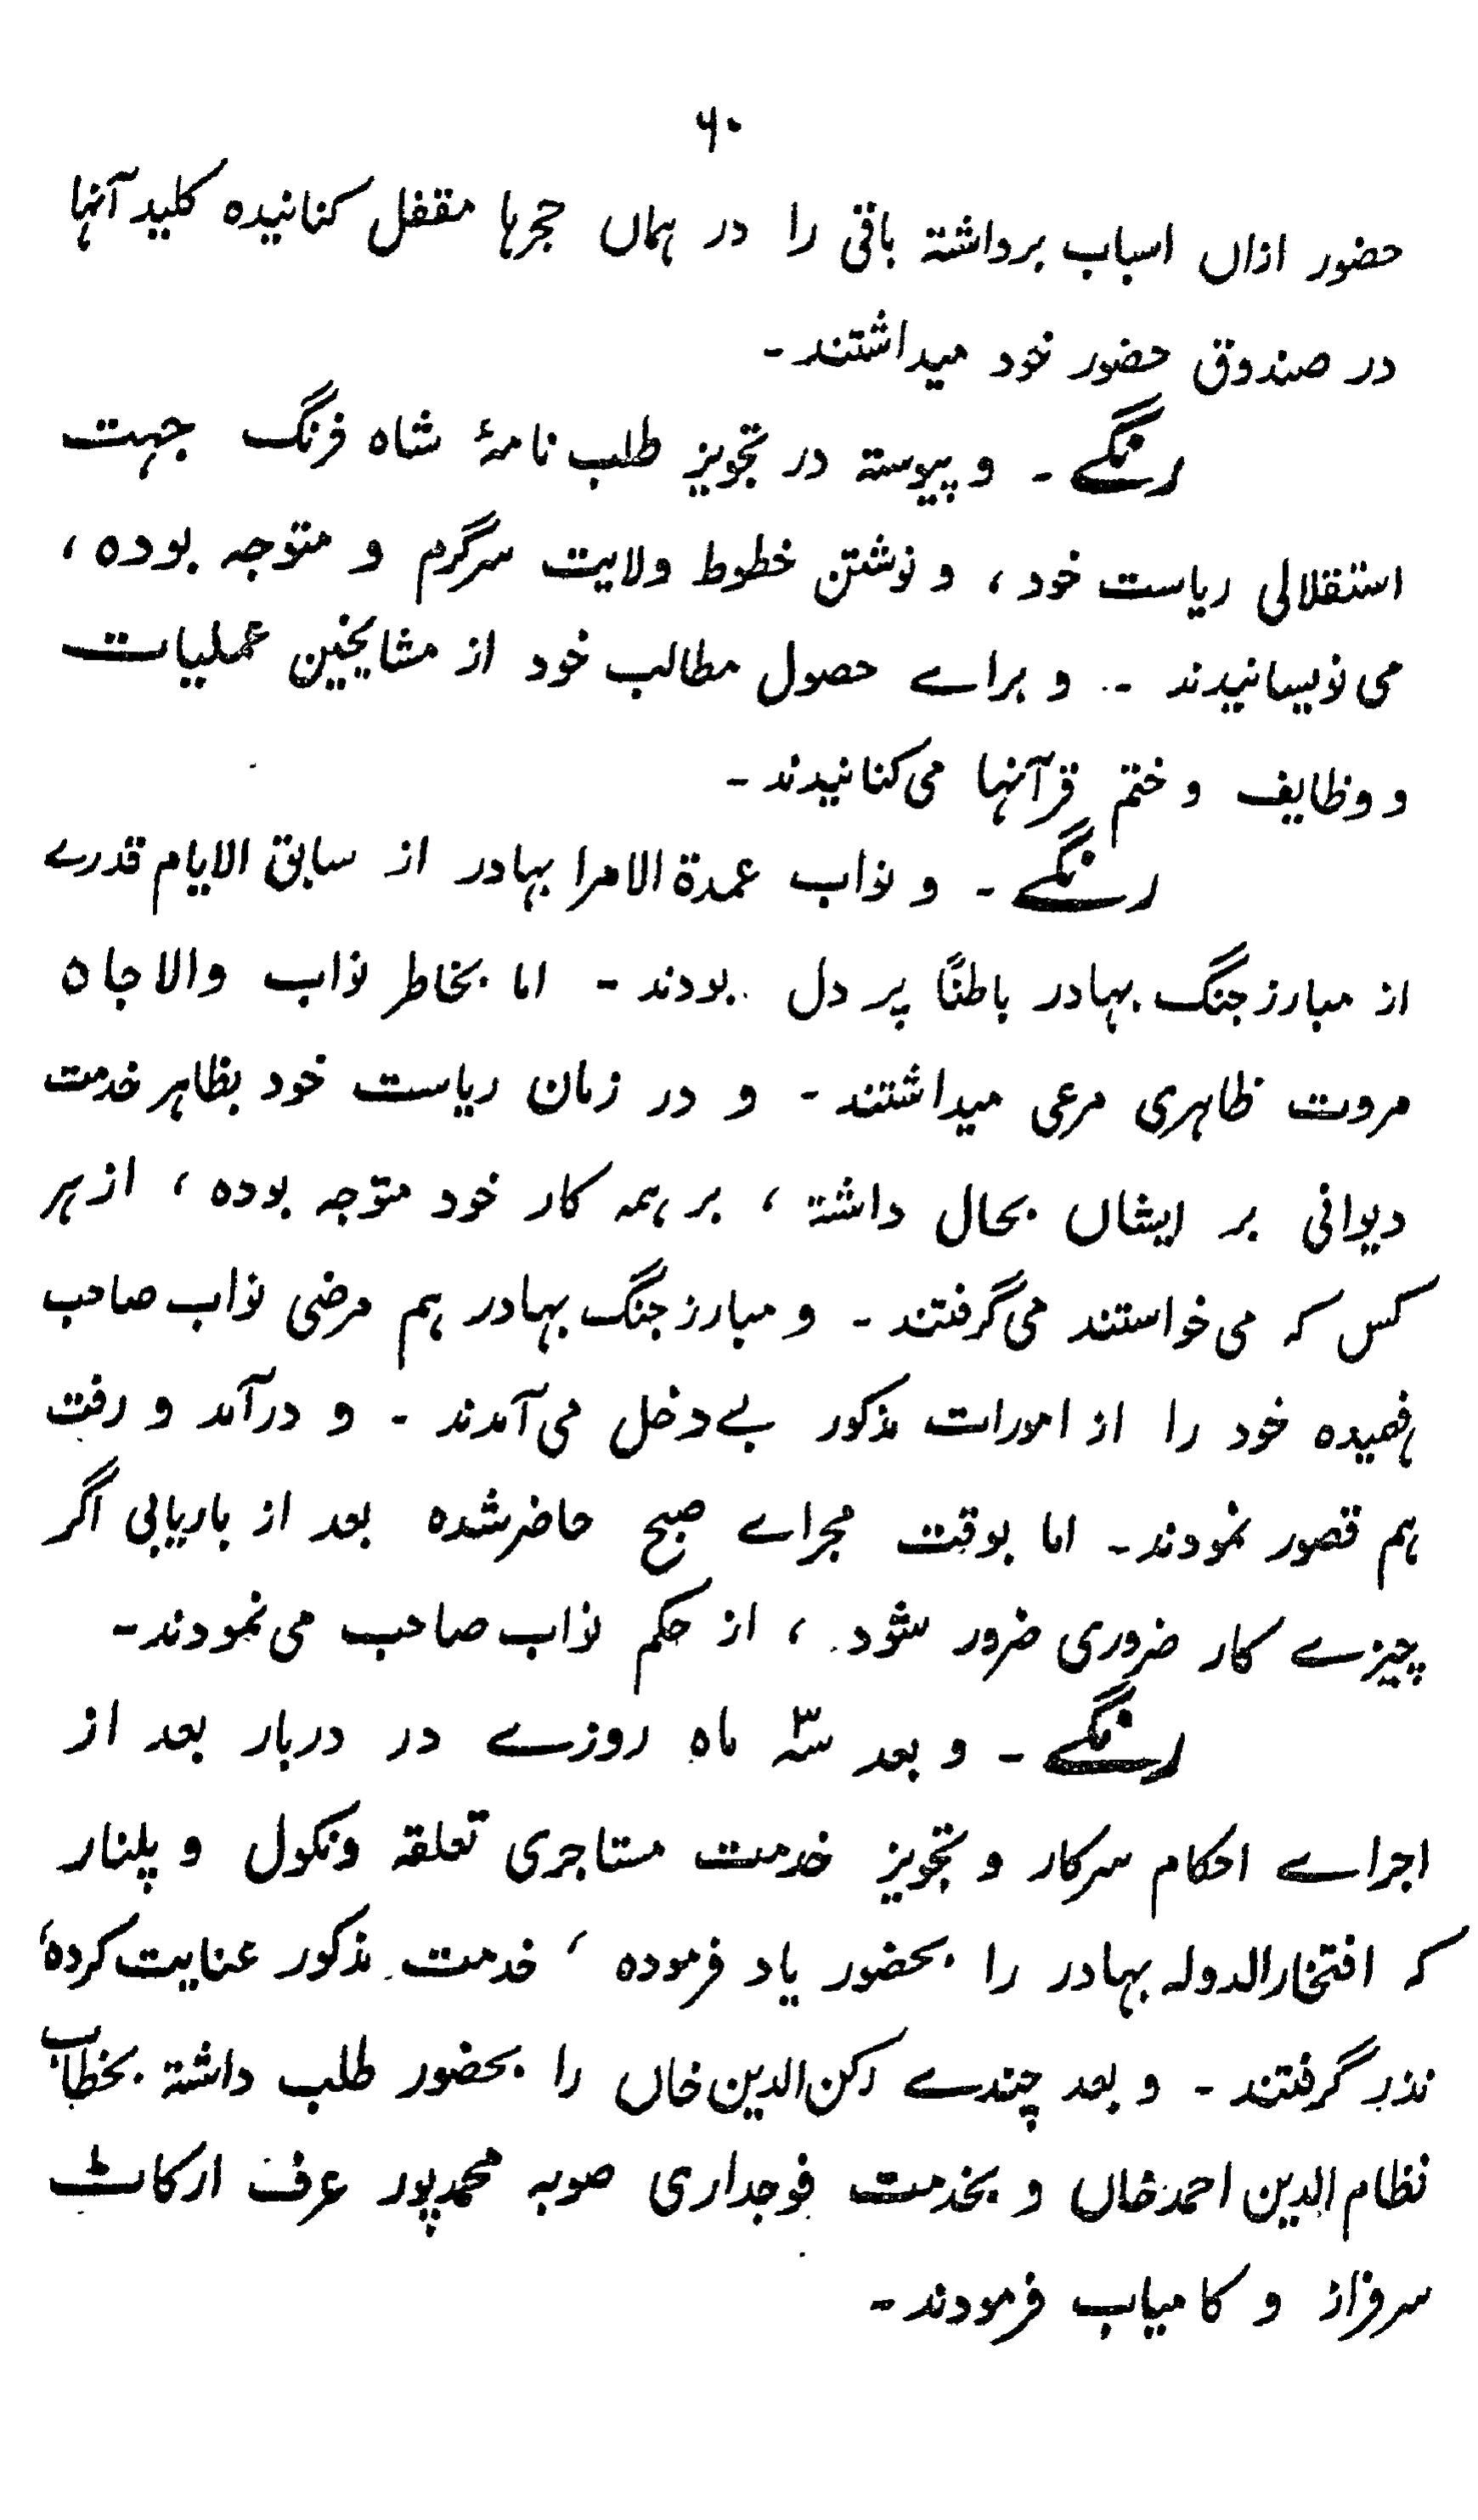 ۶۰
حضور ازاں اسباب برداشتہ باقی را در ہماں حجرہا مقفل کنانیدہ کلید آنہا
در صندوق حضور خود میداشتند۔
رنگے۔ و پیوستہ در تجویز طلب نامۂ شاہ فرنگ جہت
استقلالی ریاست خود، و نوشتن خطوط ولایت سرگرم و متوجہ بودہ،
می نویسانیدند ۔ و براے حصول مطالب خود از مشایخین عملیات
و وظایف و ختم قرآنہا می کنانیدند۔
رنگے۔ و نواب عمدۃ الامرا بہادر از سابق الایام قدرے
از مبارز جنگ بہادر باطناً پر دل بودند۔ اما بخاطر نواب والاجاہ
مروت ظاہری مرعی میداشتند۔ و در زمان ریاست خود بظاہر خدمت
دیوانی بر ایشاں بحال داشتہ، بر ہمہ کار خود متوجہ بودہ، از ہر
کس کہ می خواستند می گرفتند۔ و مبارز جنگ بہادر ہم مرضی نواب صاحب
فہمیدہ خود را از امورات مذکور بے دخل می آمدند۔ و در آمد و رفت
ہم قصور نمودند۔ اما بوقت مجراے صبح حاضر شدہ بعد از باریابی اگر
چیزے کار ضروری ضرور شود، از حکم نواب صاحب می نمودند۔
رنگے۔ و بعد سہ ۳ ماہ روزے در دربار بعد از
اجراے احکام سرکار و تجویز خدمت مستاجری تعلقہ ونکول و پلنار
کہ افتخار الدولہ بہادر را بحضور یاد فرمودہ، خدمت مذکور عنایت کردہ،
نذر گرفتند۔ و بعد چندے رکن الدین خاں را بحضور طلب داشتہ بخطاب
نظام الدین احمد خاں و بخدمت فوجداری صوبہ محمد پور عرف ارکاٹ
سرفراز و کامیاب فرمودند۔